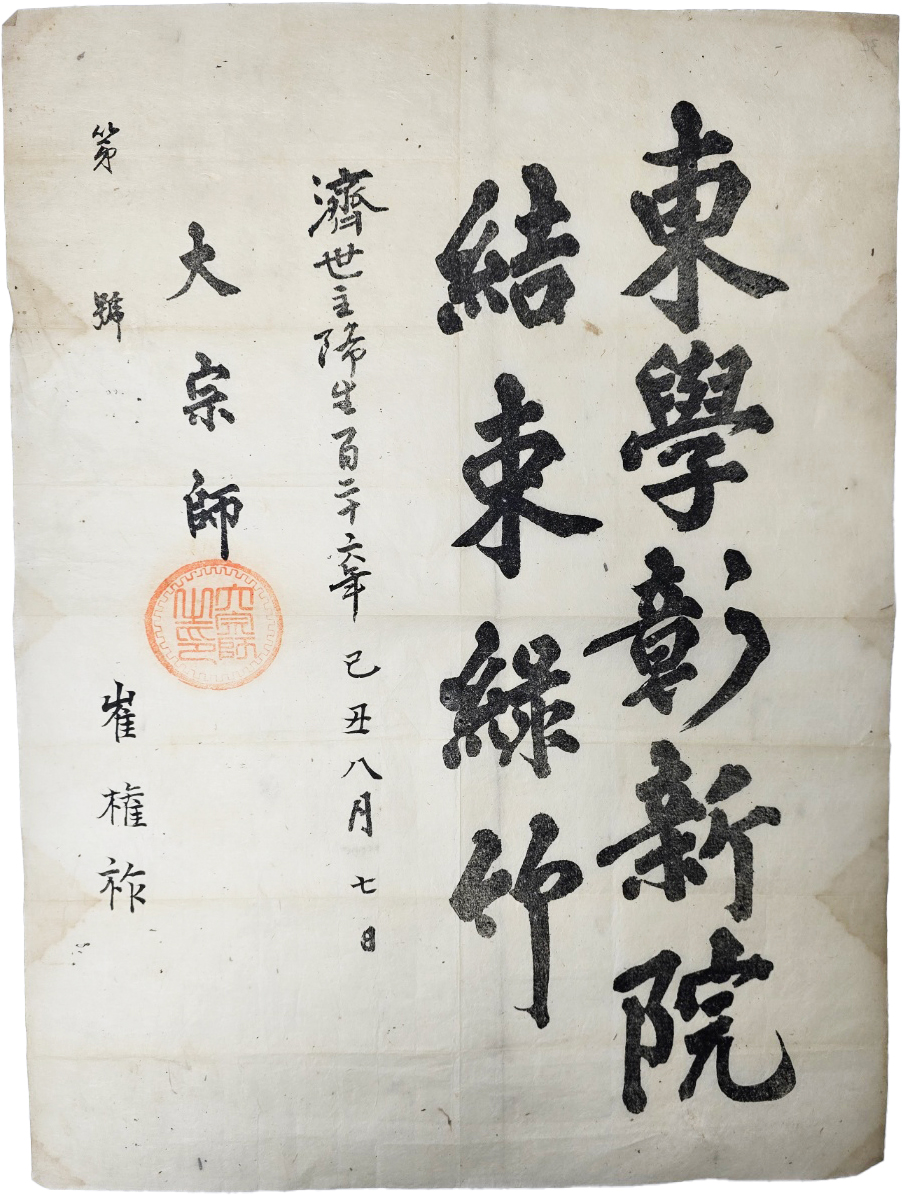 東學彰新院
結束綠竹
濟世主降生百二十六年 己丑八月七日
大宗師
大宗師之印
崔權祚
第 號